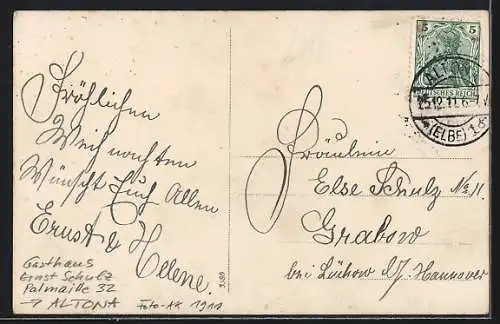 Fröhlichen
Weihnachten
Wünscht Euch Allen
Ernst & Helene.
Gasthaus
Ernst Schulz
Palmaille 32
→ ALTONA
Foto-AK 1911
5 5
DEUTSCHES REICH
ALTONA
25.12.11. 6-7 V
* (ELBE) 1
Fräulein
Else Schulz No 11.
Grabow
bei Lüchow i/ Hannover